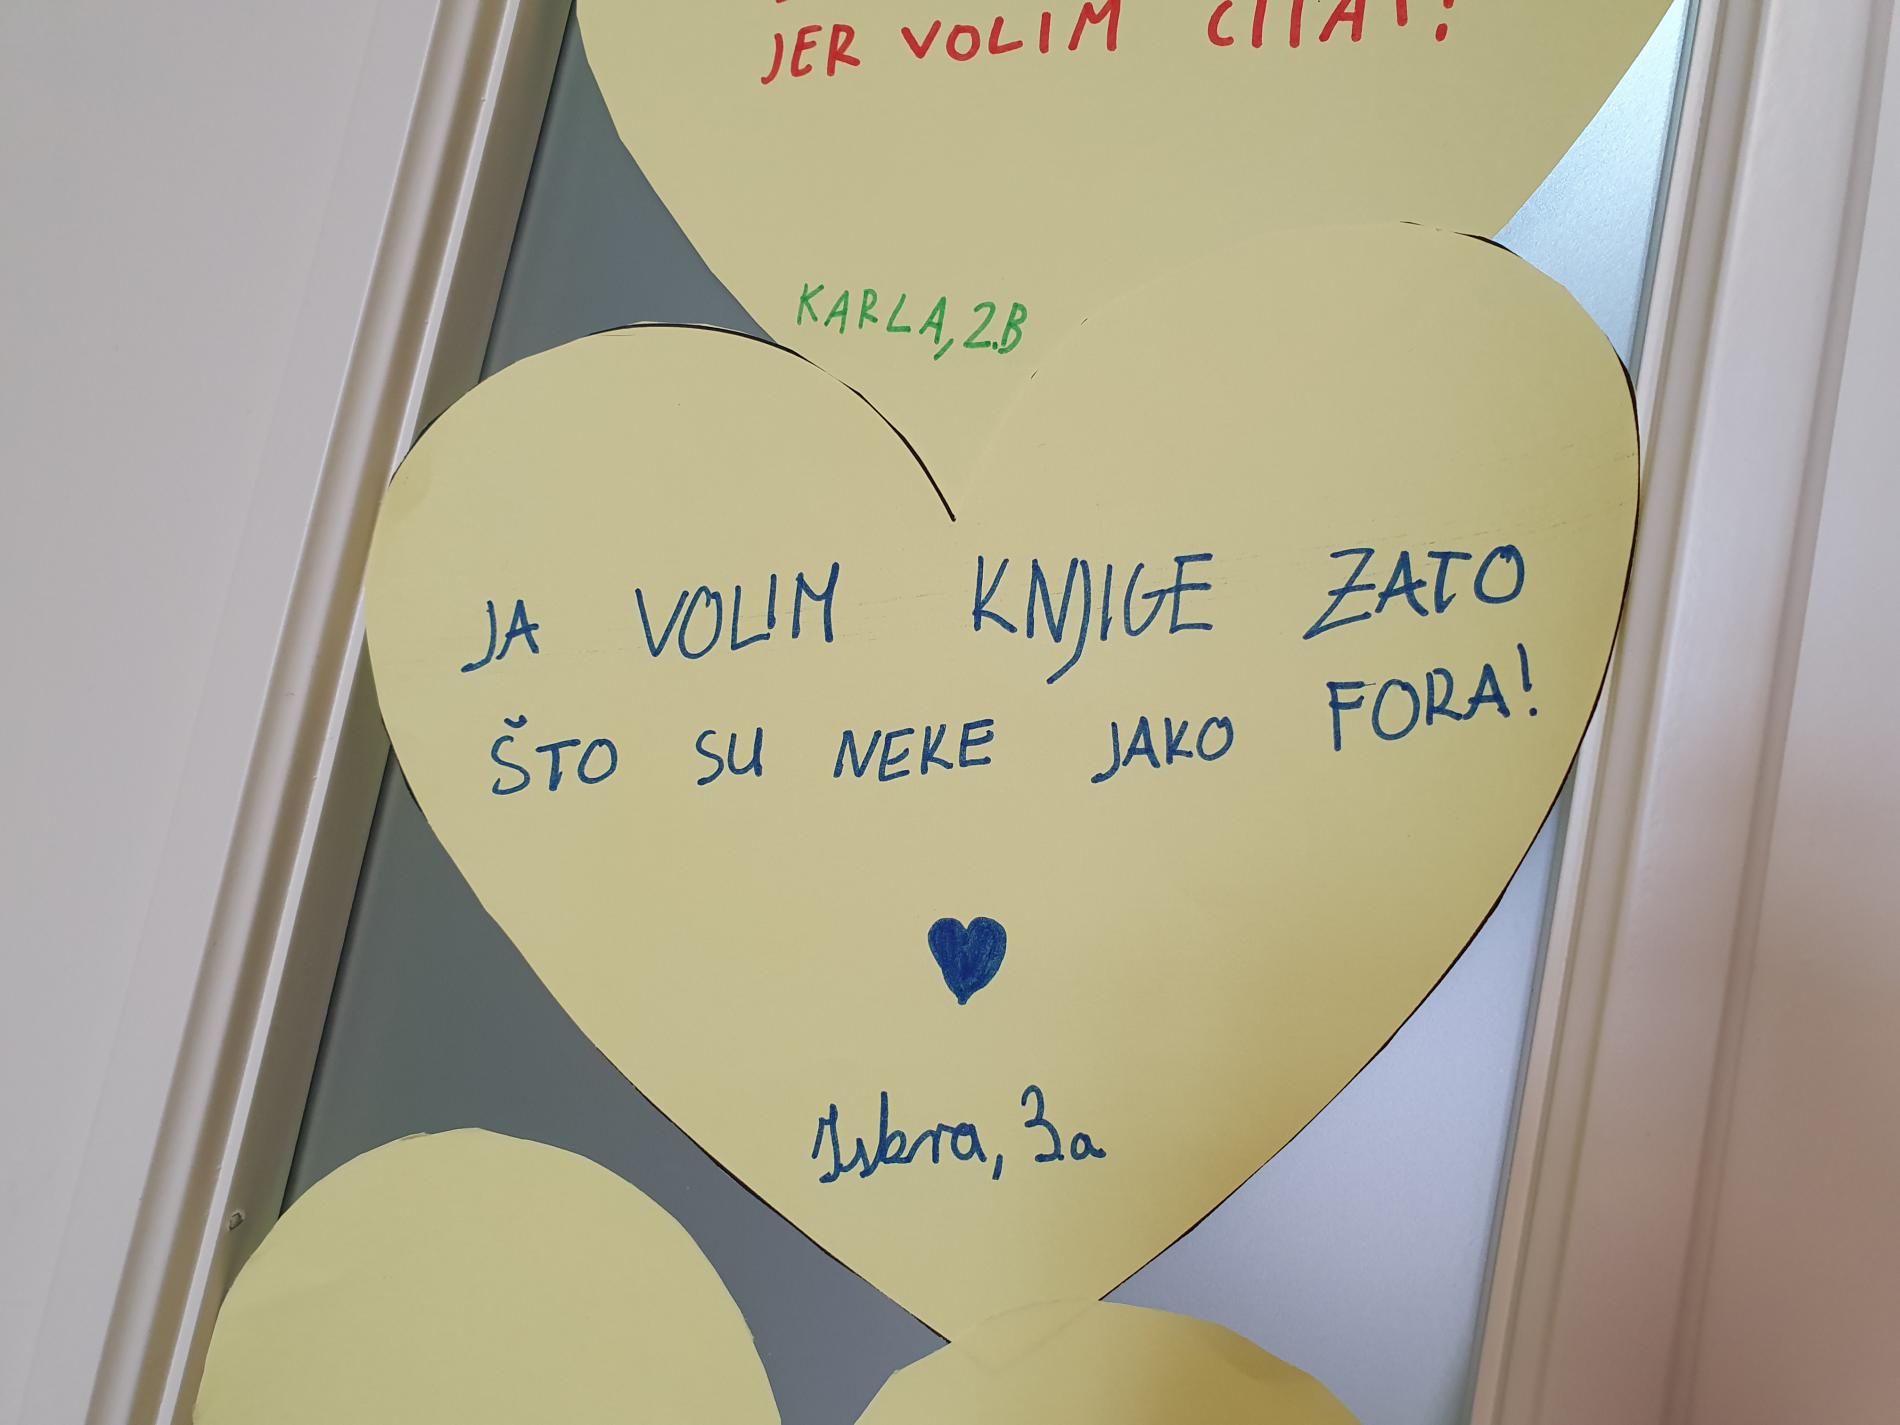 JER VOLIM ČITATI!
KARLA, 2.B
JA VOLIM KNJIGE ZATO
ŠTO SU NEKE JAKO FORA!
Iskra, 3.a